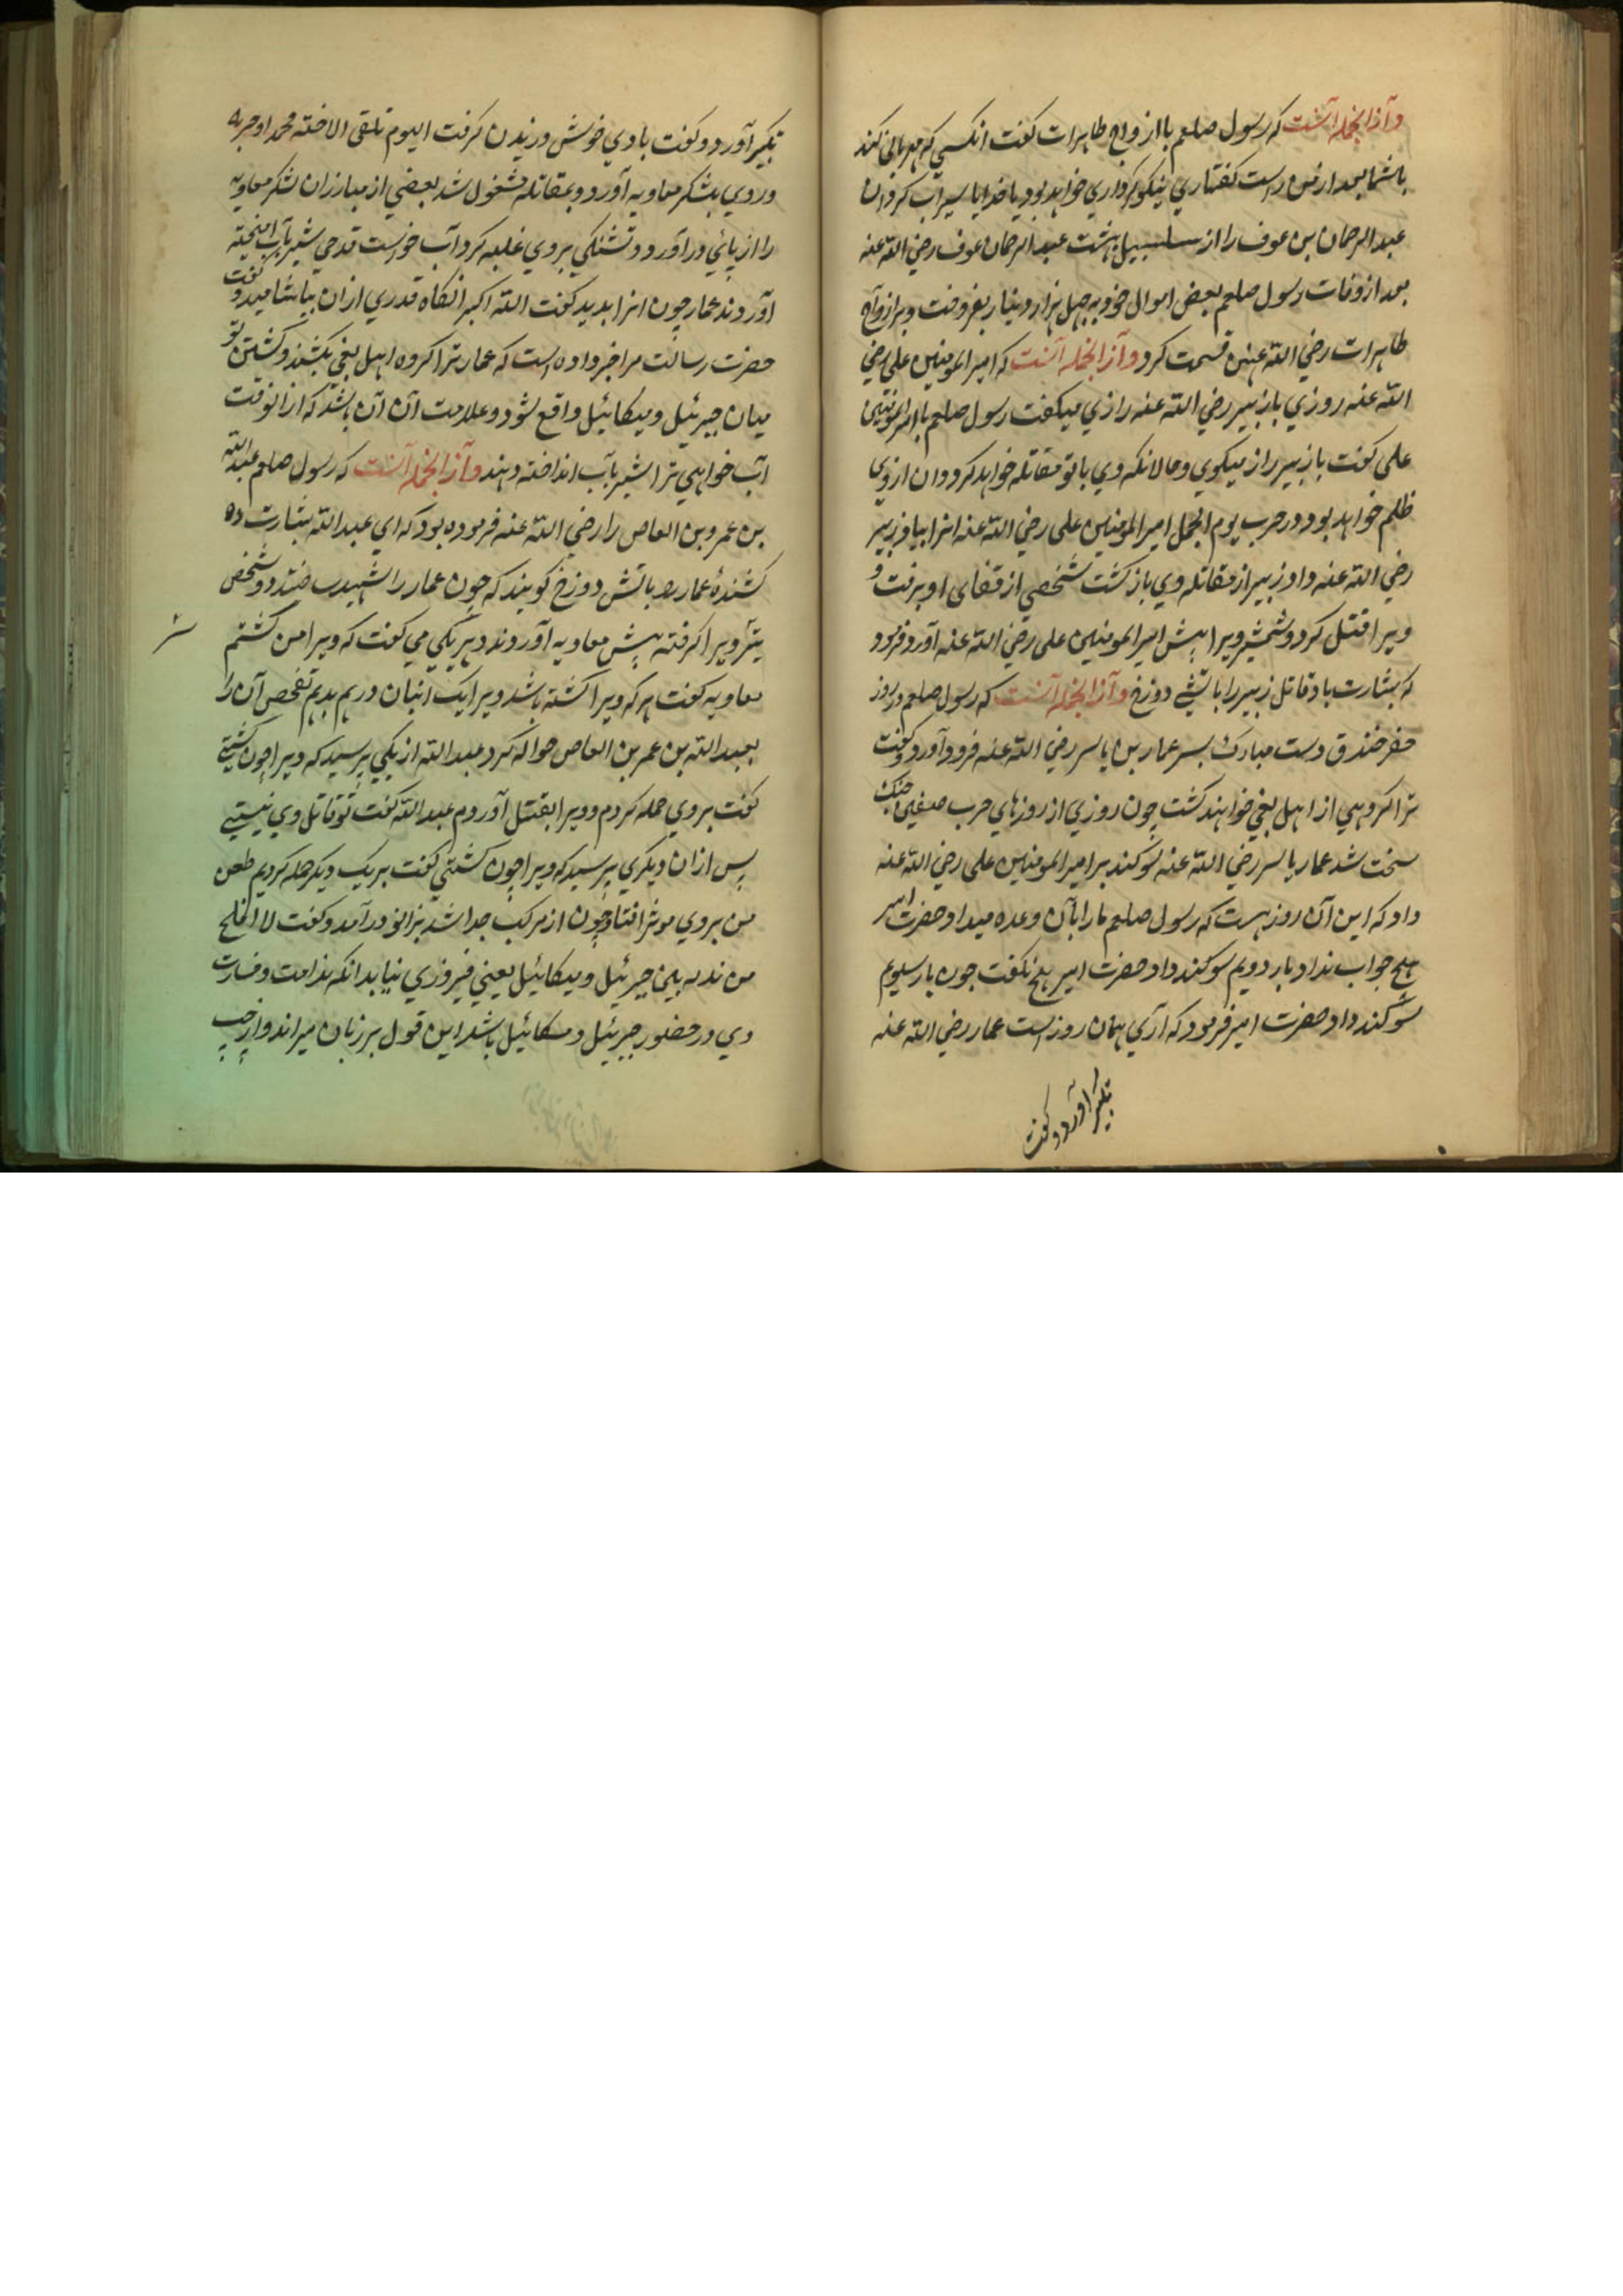 وازانجمله آنست که رسول صلعم با ازواج طاهرات کفت انکسی که مهربانی کند
باشما بعد از من راست کفتاری نیکو کرداری خواهد بود یا خدایا سیراب کردان
عبد الرحمان بن عوف را از سلسبیل بهشت عبد الرحمان عوف رضی الله عنه
بعد از وفات رسول صلعم بعض اموال خود بچهل هزار دینار بفروخت و بر ازواج
طاهرات رضی الله عنهن قسمت کرد وازانجمله آنست که امیر المومنین علی رضی
الله عنه روزی با زبیر رضی الله عنه رازی میکفت رسول صلعم با امیر المومنین
علی کفت با زبیر راز میکوی و حالانکه وی با تو مقاتله خواهد کرد و ان از وی
ظلم خواهد بود در حرب یوم الجمل امیر المومنین علی رضی الله عنه انرا بیاد زبیر
رضی الله عنه داد زبیر از مقاتله وی باز کشت شخصی از قفای او برفت و
ویرا قتل کرد و شمشیر ویرا پیش امیر المومنین علی رضی الله عنه آورد فرمود
که بشارت باد قاتل زبیر را باتش دوزخ وازانجمله آنست که رسول صلعم در روز
حفر خندق دست مبارک بسر عمار بن یاسر رضی الله عنه فرود آورد و کفت
ترا کروهی از اهل بغی خواهند کشت چون روزی از روزهای حرب صفین جنک
سخت شد عمار یاسر رضی الله عنه سوکند بر امیر المومنین علی رضی الله عنه
داد که این آن روز هست که رسول صلعم مارا بآن وعده میداد حضرت امیر
هیچ جواب نداد بار دویم سوکند داد حضرت امیر هیچ نکفت چون بار سیوم
سوکند داد حضرت امیر فرمود که آری همان روز است عمار رضی الله عنه
تکبیر آورد و کفت
تکبیر آورد و کفت بادی خوش وزیدن کرفت الیوم تلقی الاحبه محمد او حزبه
و روی بلشکر معاویه آورد و بمقاتله مشغول شد بعضی از مبارزان لشکر معاویه
را از پای در آورد و تشنکی بروی غلبه کرد آب خواست قدحی شیر بآب امیخته
آوردند عمار چون انرا بدید کفت الله اکبر انکاه قدری ازان بیاشامید و کفت
حضرت رسالت مرا خبر داده است که عمار ترا کروه اهل بغی بکشند و کشتن تو
میان جبرئیل و میکائیل واقع شود و علامت آن آن باشد که ازانوقت
آب خواهی ترا شیر بآب انداخته دهند وازانجمله آنست که رسول صلعم عبد الله
بن عمرو بن العاص را رضی الله عنه فرموده بود که ای عبد الله بشارت ده
کشندهٔ عمار را باتش دوزخ کویند که چون عمار را شهید ساختند دو شخص
ویرا کرفته پیش معاویه آوردند و هر یکی می کفت که ویرا من کشتم
معاویه کفت هر که ویرا کشته باشد ویرا یک انبان درهم بدهم تفحص آن را
بعبد الله بن عمر بن العاص حواله کرد عبد الله از یکی پرسید که ویرا چون کشتی
کفت بروی حمله کردم و ویرا بقتل آوردم عبد الله کفت تو قاتل وی نیستی
پس ازان دیکری پرسید که ویرا چون کشتی کفت بر یک دیکر حمله کردیم طعن
من بروی موثر افتاد چون از مرکب جدا شد بزانو در آمد و کفت لا افلح
من ندم بین جبرئیل و میکائیل یعنی فیروزی نیابد انکه ندامت و خسارت
وی در حضور جبرئیل و میکائیل باشد این قول بر زبان میراند و از چپ